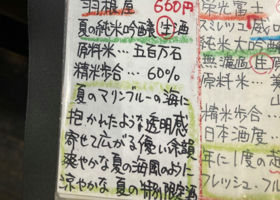 羽根屋 660円
夏の純米吟醸 生 酒
原料米… 五百万石
精米歩合… 60%
夏のマリンブルーの海に
抱かれたような透明感
寄せて広がる優しい余韻
爽やかな夏の海風のように
涼やかな夏の特別限定酒
栄光富士
純米大吟
無濾過 生
原料米…
精米歩合
日本酒度
年に1度の
フレッシュ・フル